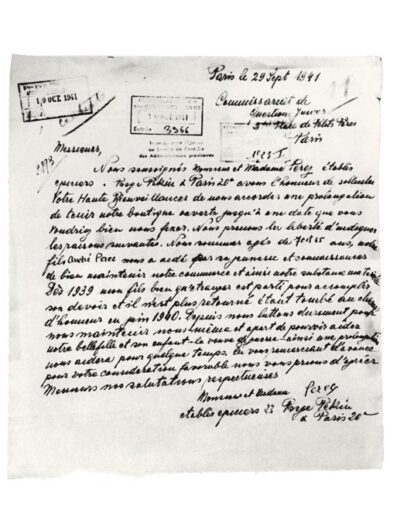 Paris le 29 Sept 1941
10 OCT 1941
Commissariat de
Questions Juives
Place de Petits Pères
Paris
10 OCT 1941
Entrée 3566
Messieurs,
Nous soussignés Monsieur et Madame Perez établis
epiciers. Passage Pékin à Paris 20e avons l'honneur de solliciter
Votre Haute Bienveillance de nous accorder une prolongation
de tenir notre boutique ouverte jusqu'à une date que vous
voudriez bien nous fixer. Nous prenons la liberté d'indiquer
les raisons suivantes. Nous sommes agés de 70 et 65 ans, notre
fils André Perez nous a aidé par sa jeunesse et connaissances
de bien maintenir notre commerce et ainsi notre
Dès 1939 mon fils bien qu'etranger est parti pour accomplir
son devoir et il n'est plus retourné étant tombé au champ
d'honneur en juin 1940. Depuis nous luttons durement pour
nous maintenir nous même et apart de pouvoir aider
notre bellefille et son enfant - la veuve de guerre - ainsi une
nous aidera pour quelque temps. En vous remerciant d'avance
pour votre consideration favorable nous vous prions d'agréer
Messieurs nos salutations respectueuses
Monsieur et Madame Perez
etablis epiciers 22 Passage Pékin
à Paris 20e